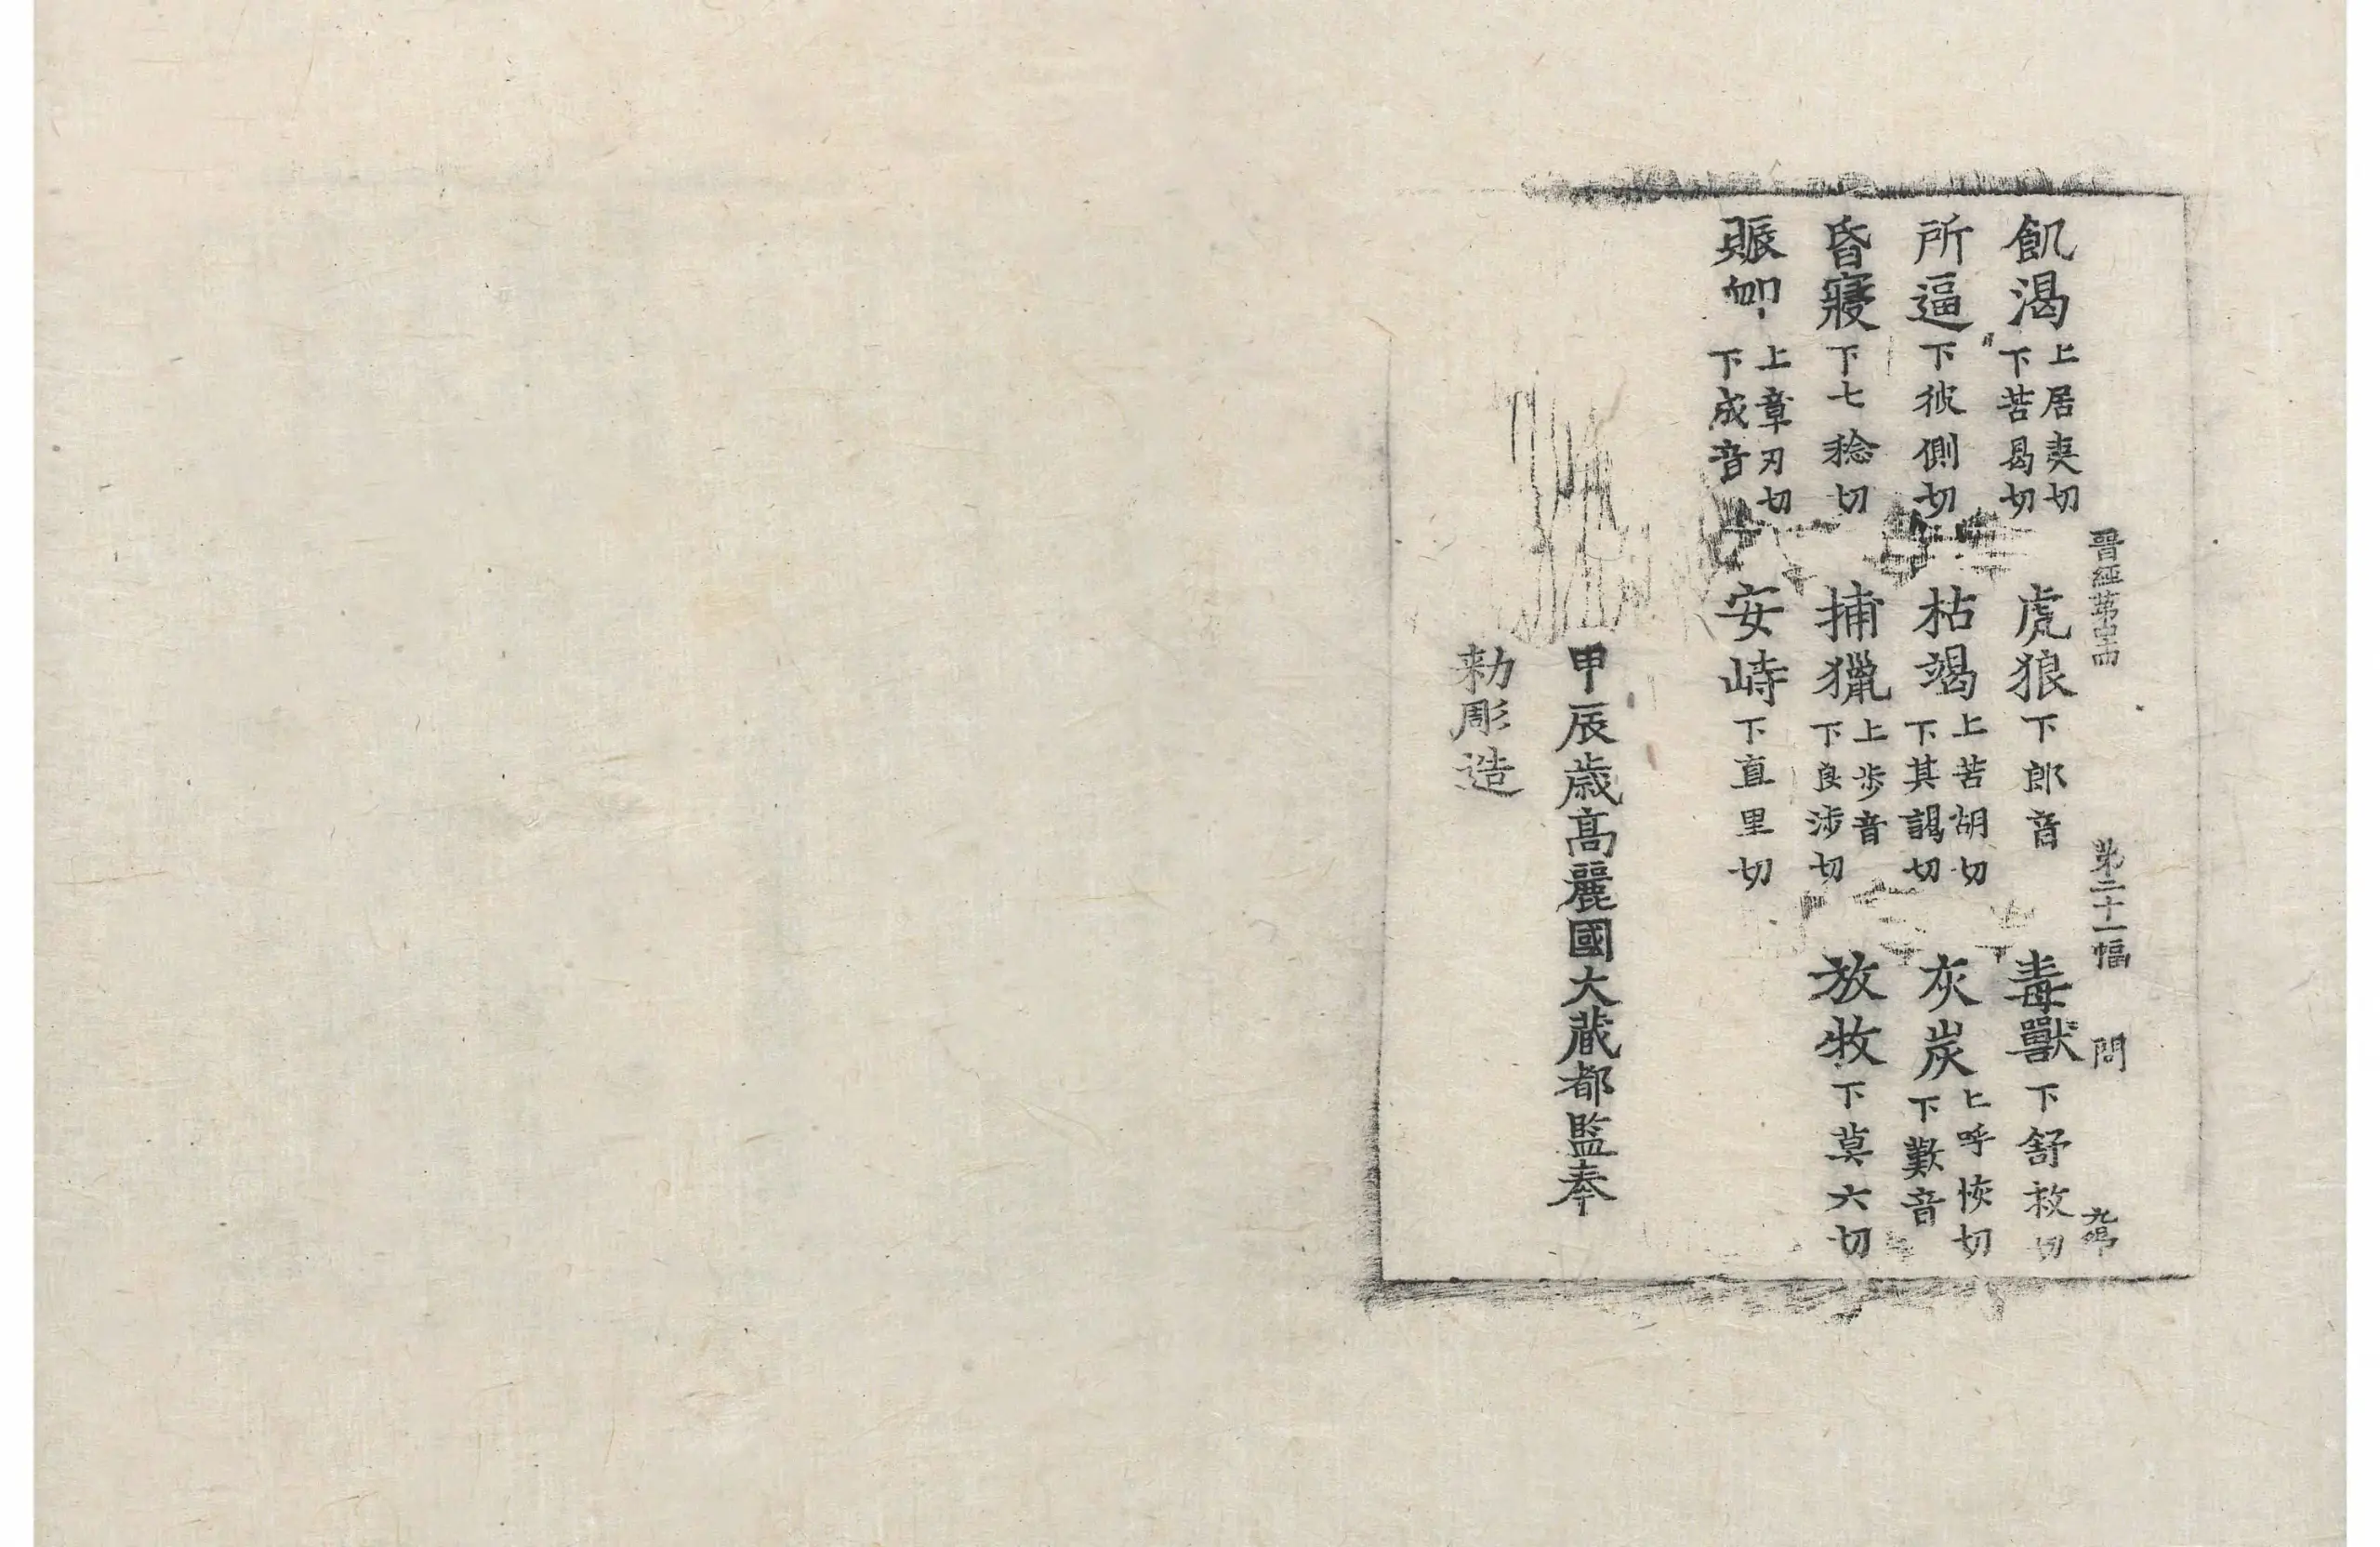 晋經苐 苐二十一幅 問
飢渴上居夷切下苦曷切 虎狼下郎音 毒獸下舒救切
所逼下彼側切 枯竭上苦胡切下其謁切 灰炭上呼恢切下歎音
昏寢下七稔切 捕獵上步音下良涉切 放牧下莫六切
賑卹上章刃切下戌音 安峙下直里切
甲辰歲高麗國大藏都監奉
勅彫造